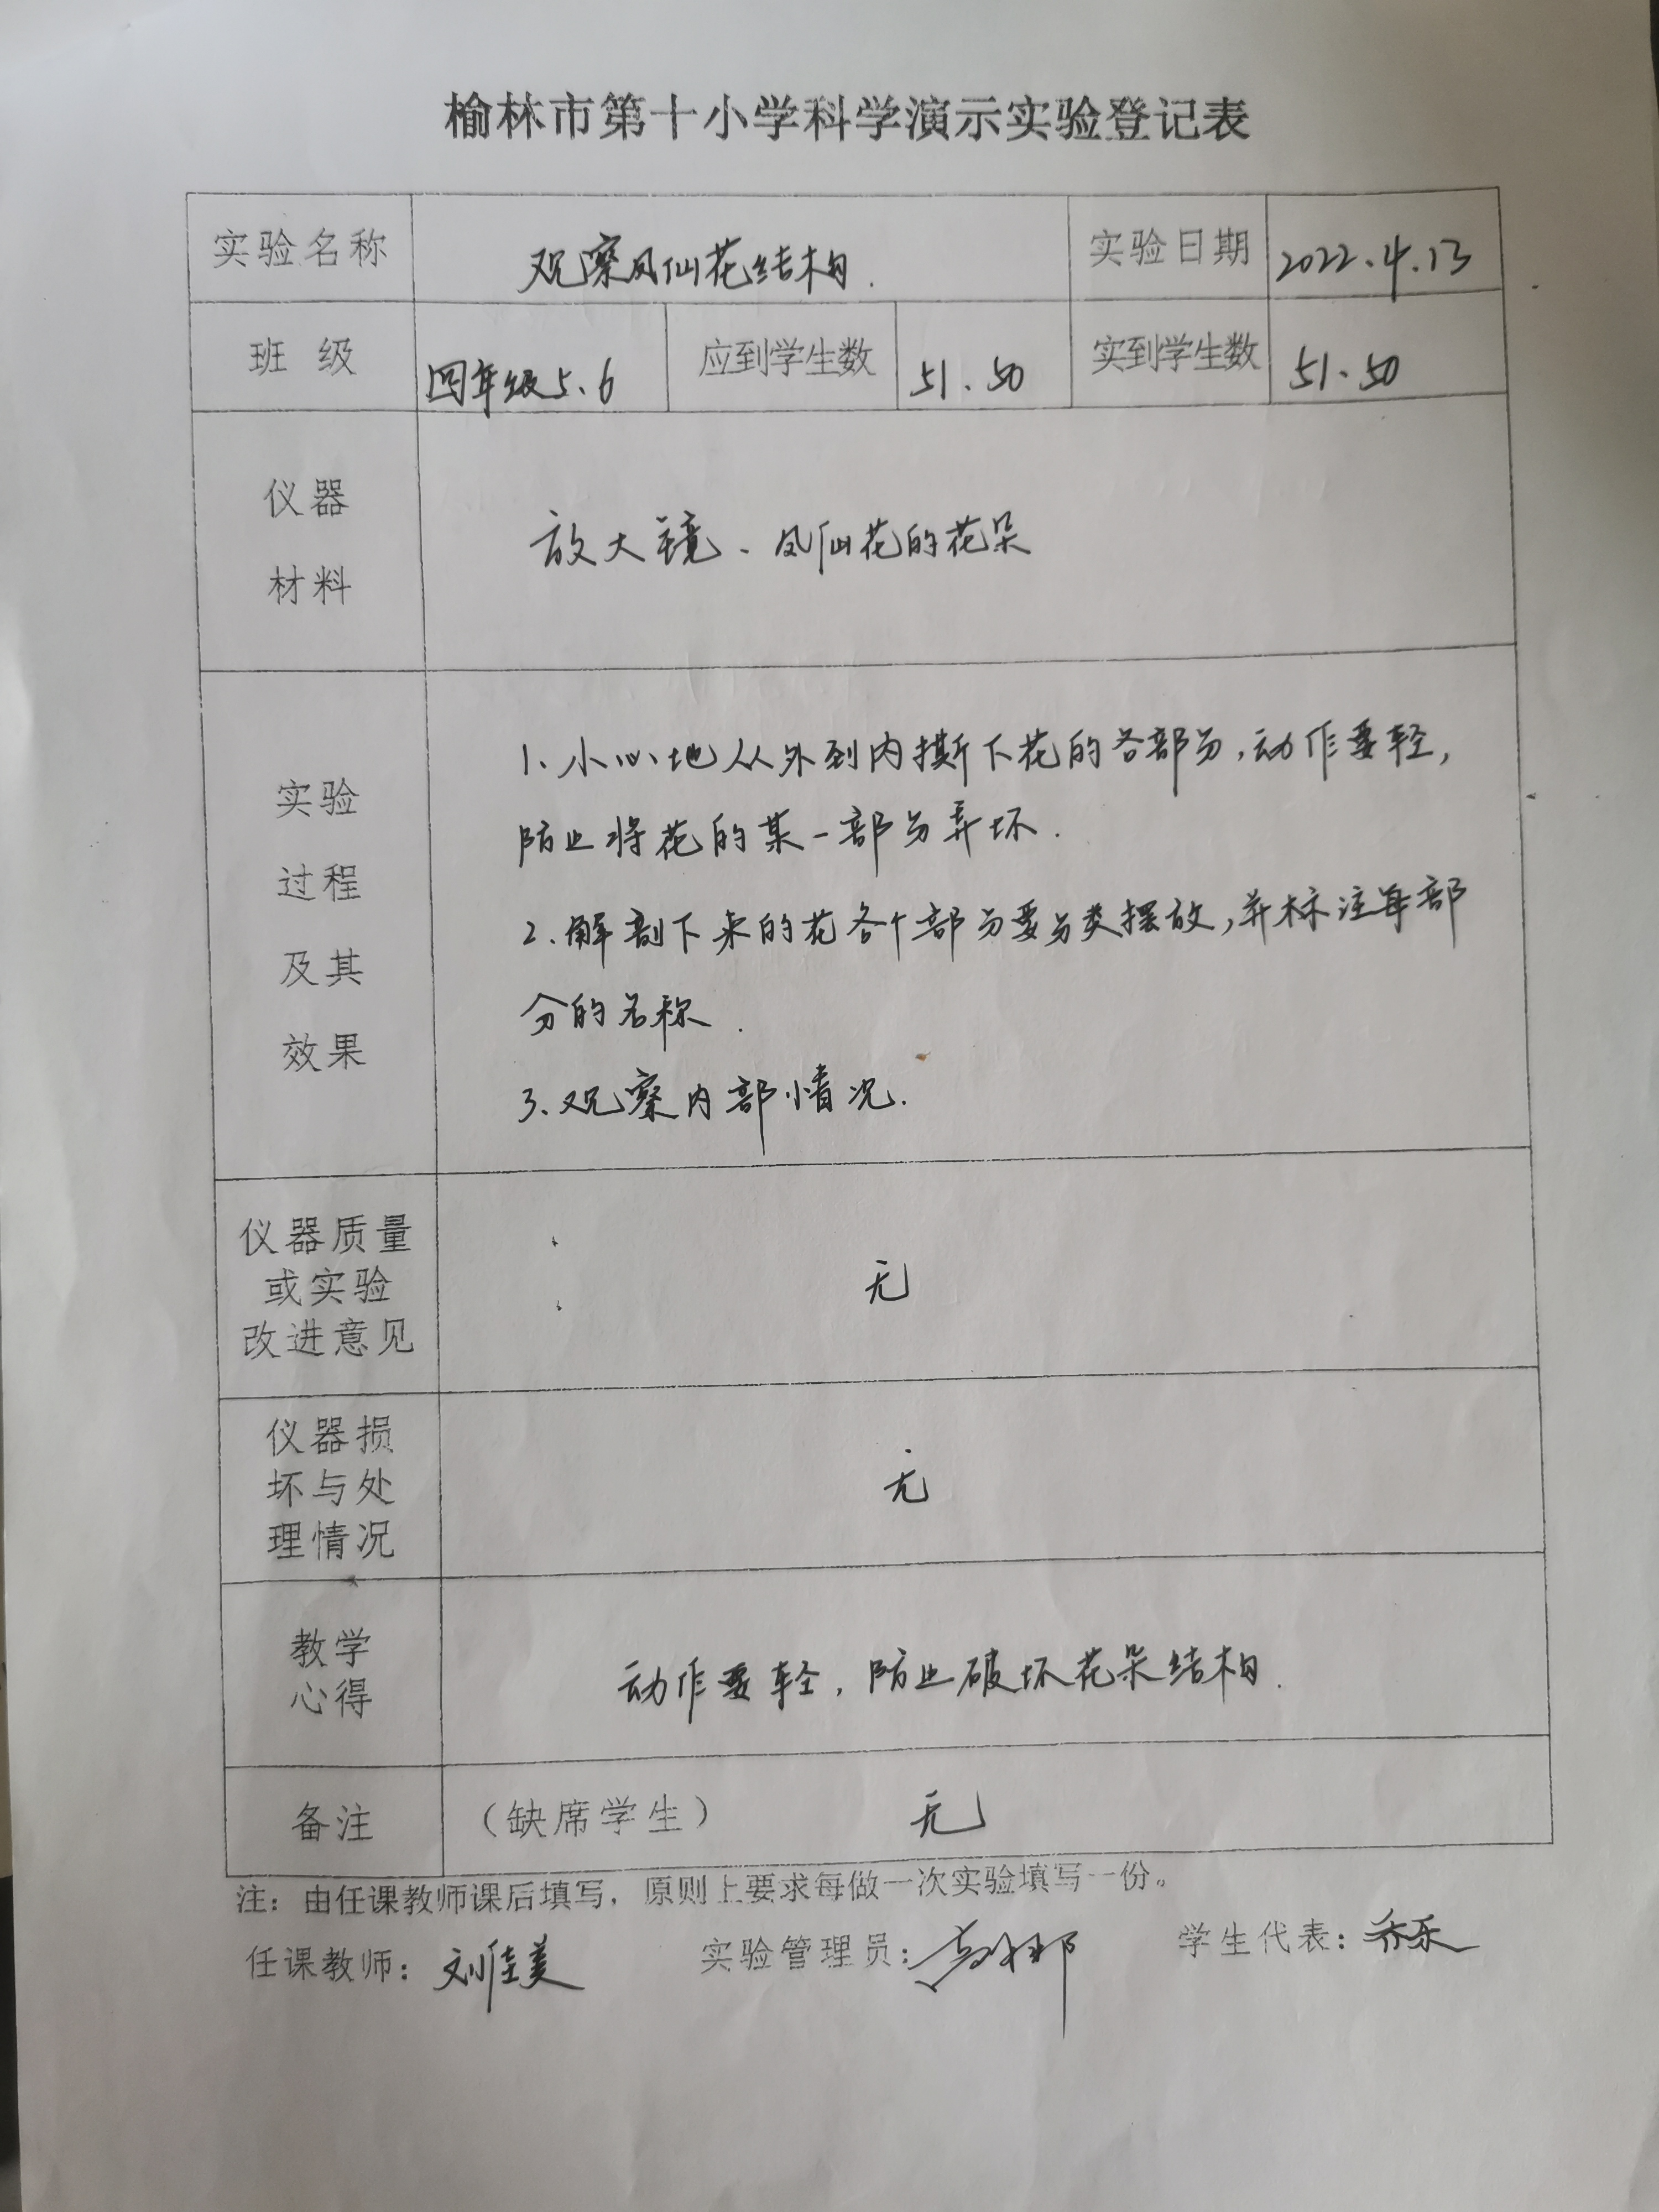 榆林市第十小学科学演示实验登记表
实验名称 观察凤仙花结构. 实验日期 2022.4.13
班 级 四年级5、6 应到学生数 51、50 实到学生数 51、50
仪器
材料
放大镜、凤仙花的花朵
实验
过程
及其
效果
1、小心地从外到内撕下花的各部分,动作要轻,
防止将花的某一部分弄坏.
2、解剖下来的花各个部分要分类摆放,并标注每部
分的名称.
3、观察内部情况.
仪器质量
或实验
改进意见
无
仪器损
坏与处
理情况
无
教学
心得
动作要轻,防止破坏花朵结构.
备注 (缺席学生) 无
注:由任课教师课后填写,原则上要求每做一次实验填写一份。
任课教师: 刘佳美 实验管理员: 学生代表: 乔乐